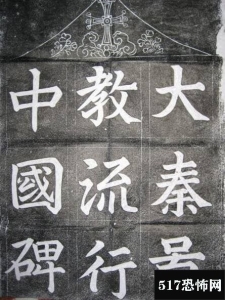 大秦景
教流行
中國碑
517恐怖网